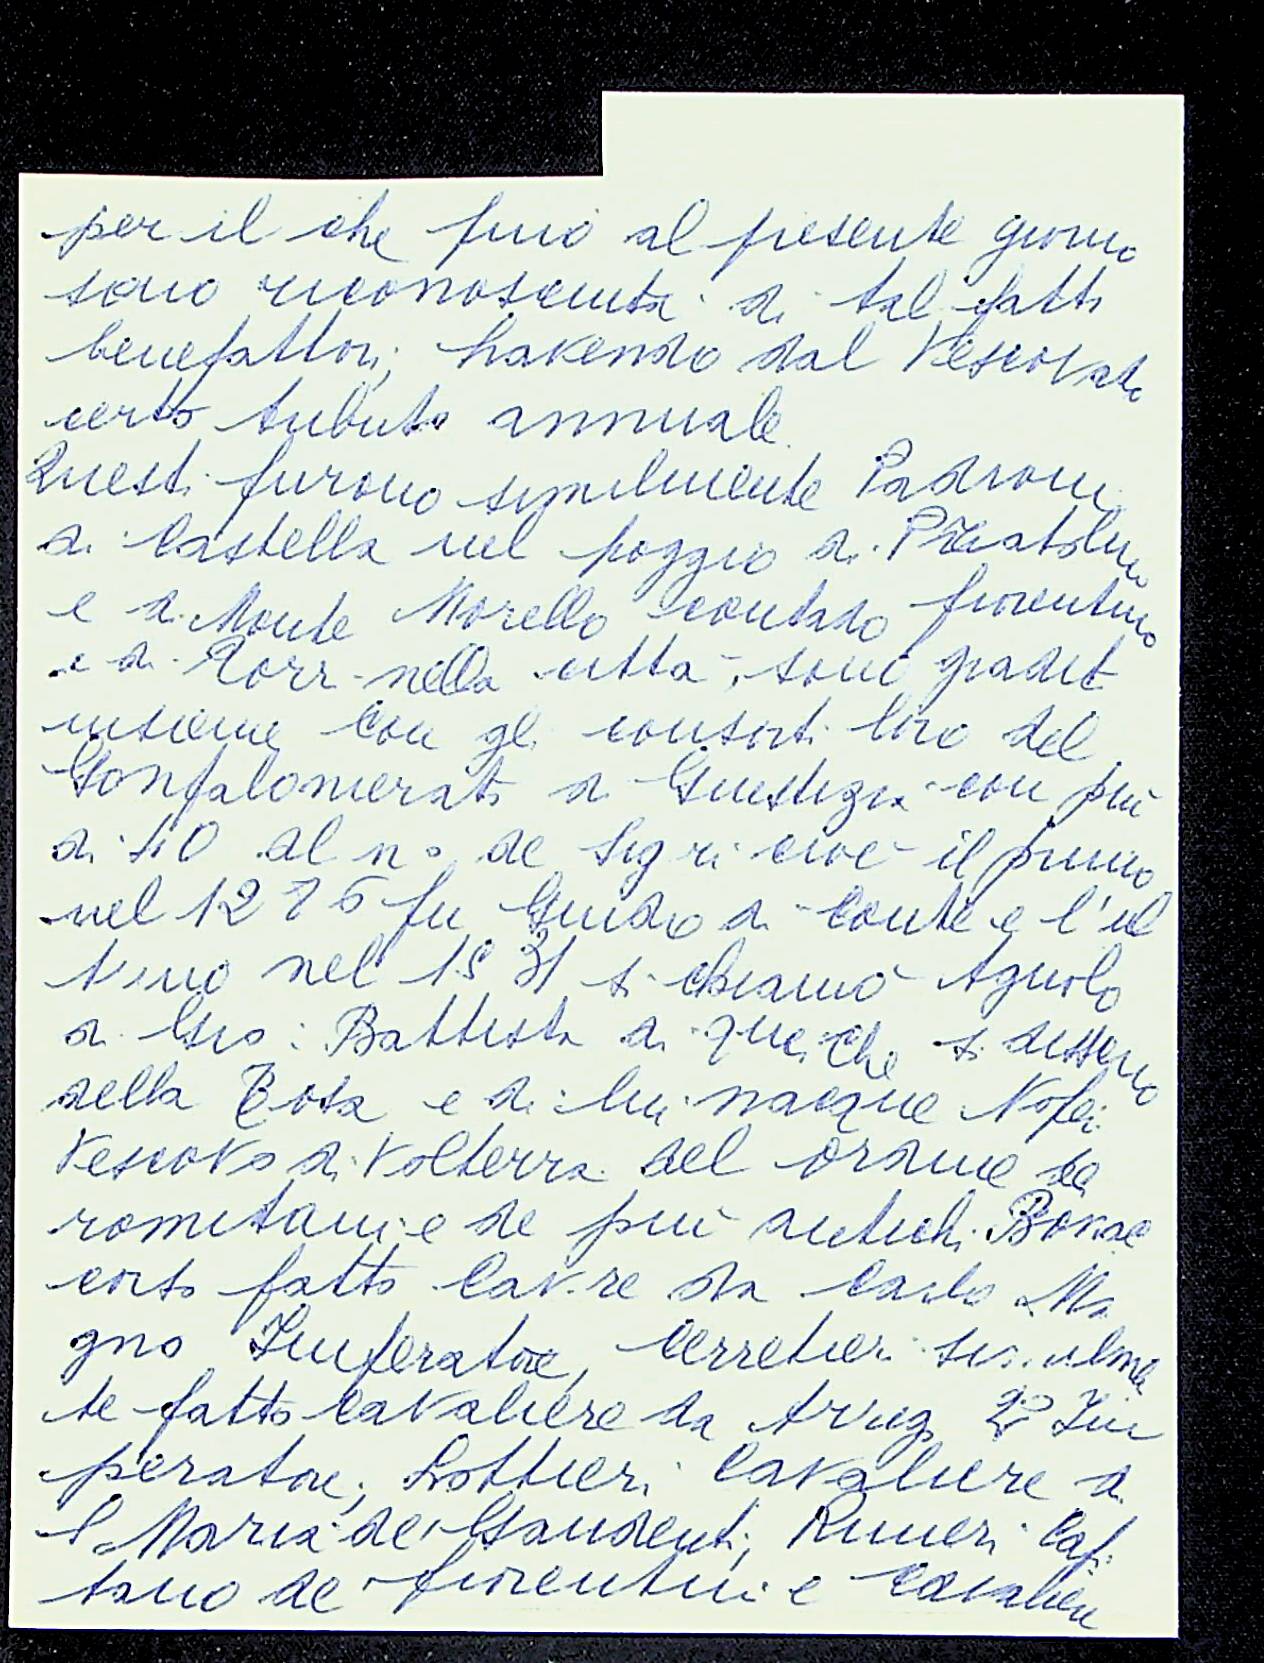 per il che fino al presente giorno
sono riconosciuti di tal fatti
benefattori; havendo dal Vescovado
certo tributo annuale
Questi furono similmente Padroni
di Castella nel poggio di Pratolino
e di Monte Morello contado fiorentino
e di Torr nella citta, sono graditi
insieme con gli consorti loro del
Gonfalonierato di Giustizia con piu
di 40 al n.o de Sigri cioè il primo
nel 1276 fu Guido di Conte e l'ul
timo nel 1531 si chiamò Agnolo
di Gio: Battista di quei che si dissero
della Tosa e di lui nacque Nofri
Vescovo di Volterra del ordine de
romitani e de piu antichi Bonac
corso fatto Cav.re da Carlo Ma
gno Imperatore, Cerretieri similme
te fatto Cavaliere da Arrig 2° Im
peratore; Lottieri Cavaliere di
S. Maria de' Gaudenti; Rinieri Capi
tano de fiorentini e Cavaliere